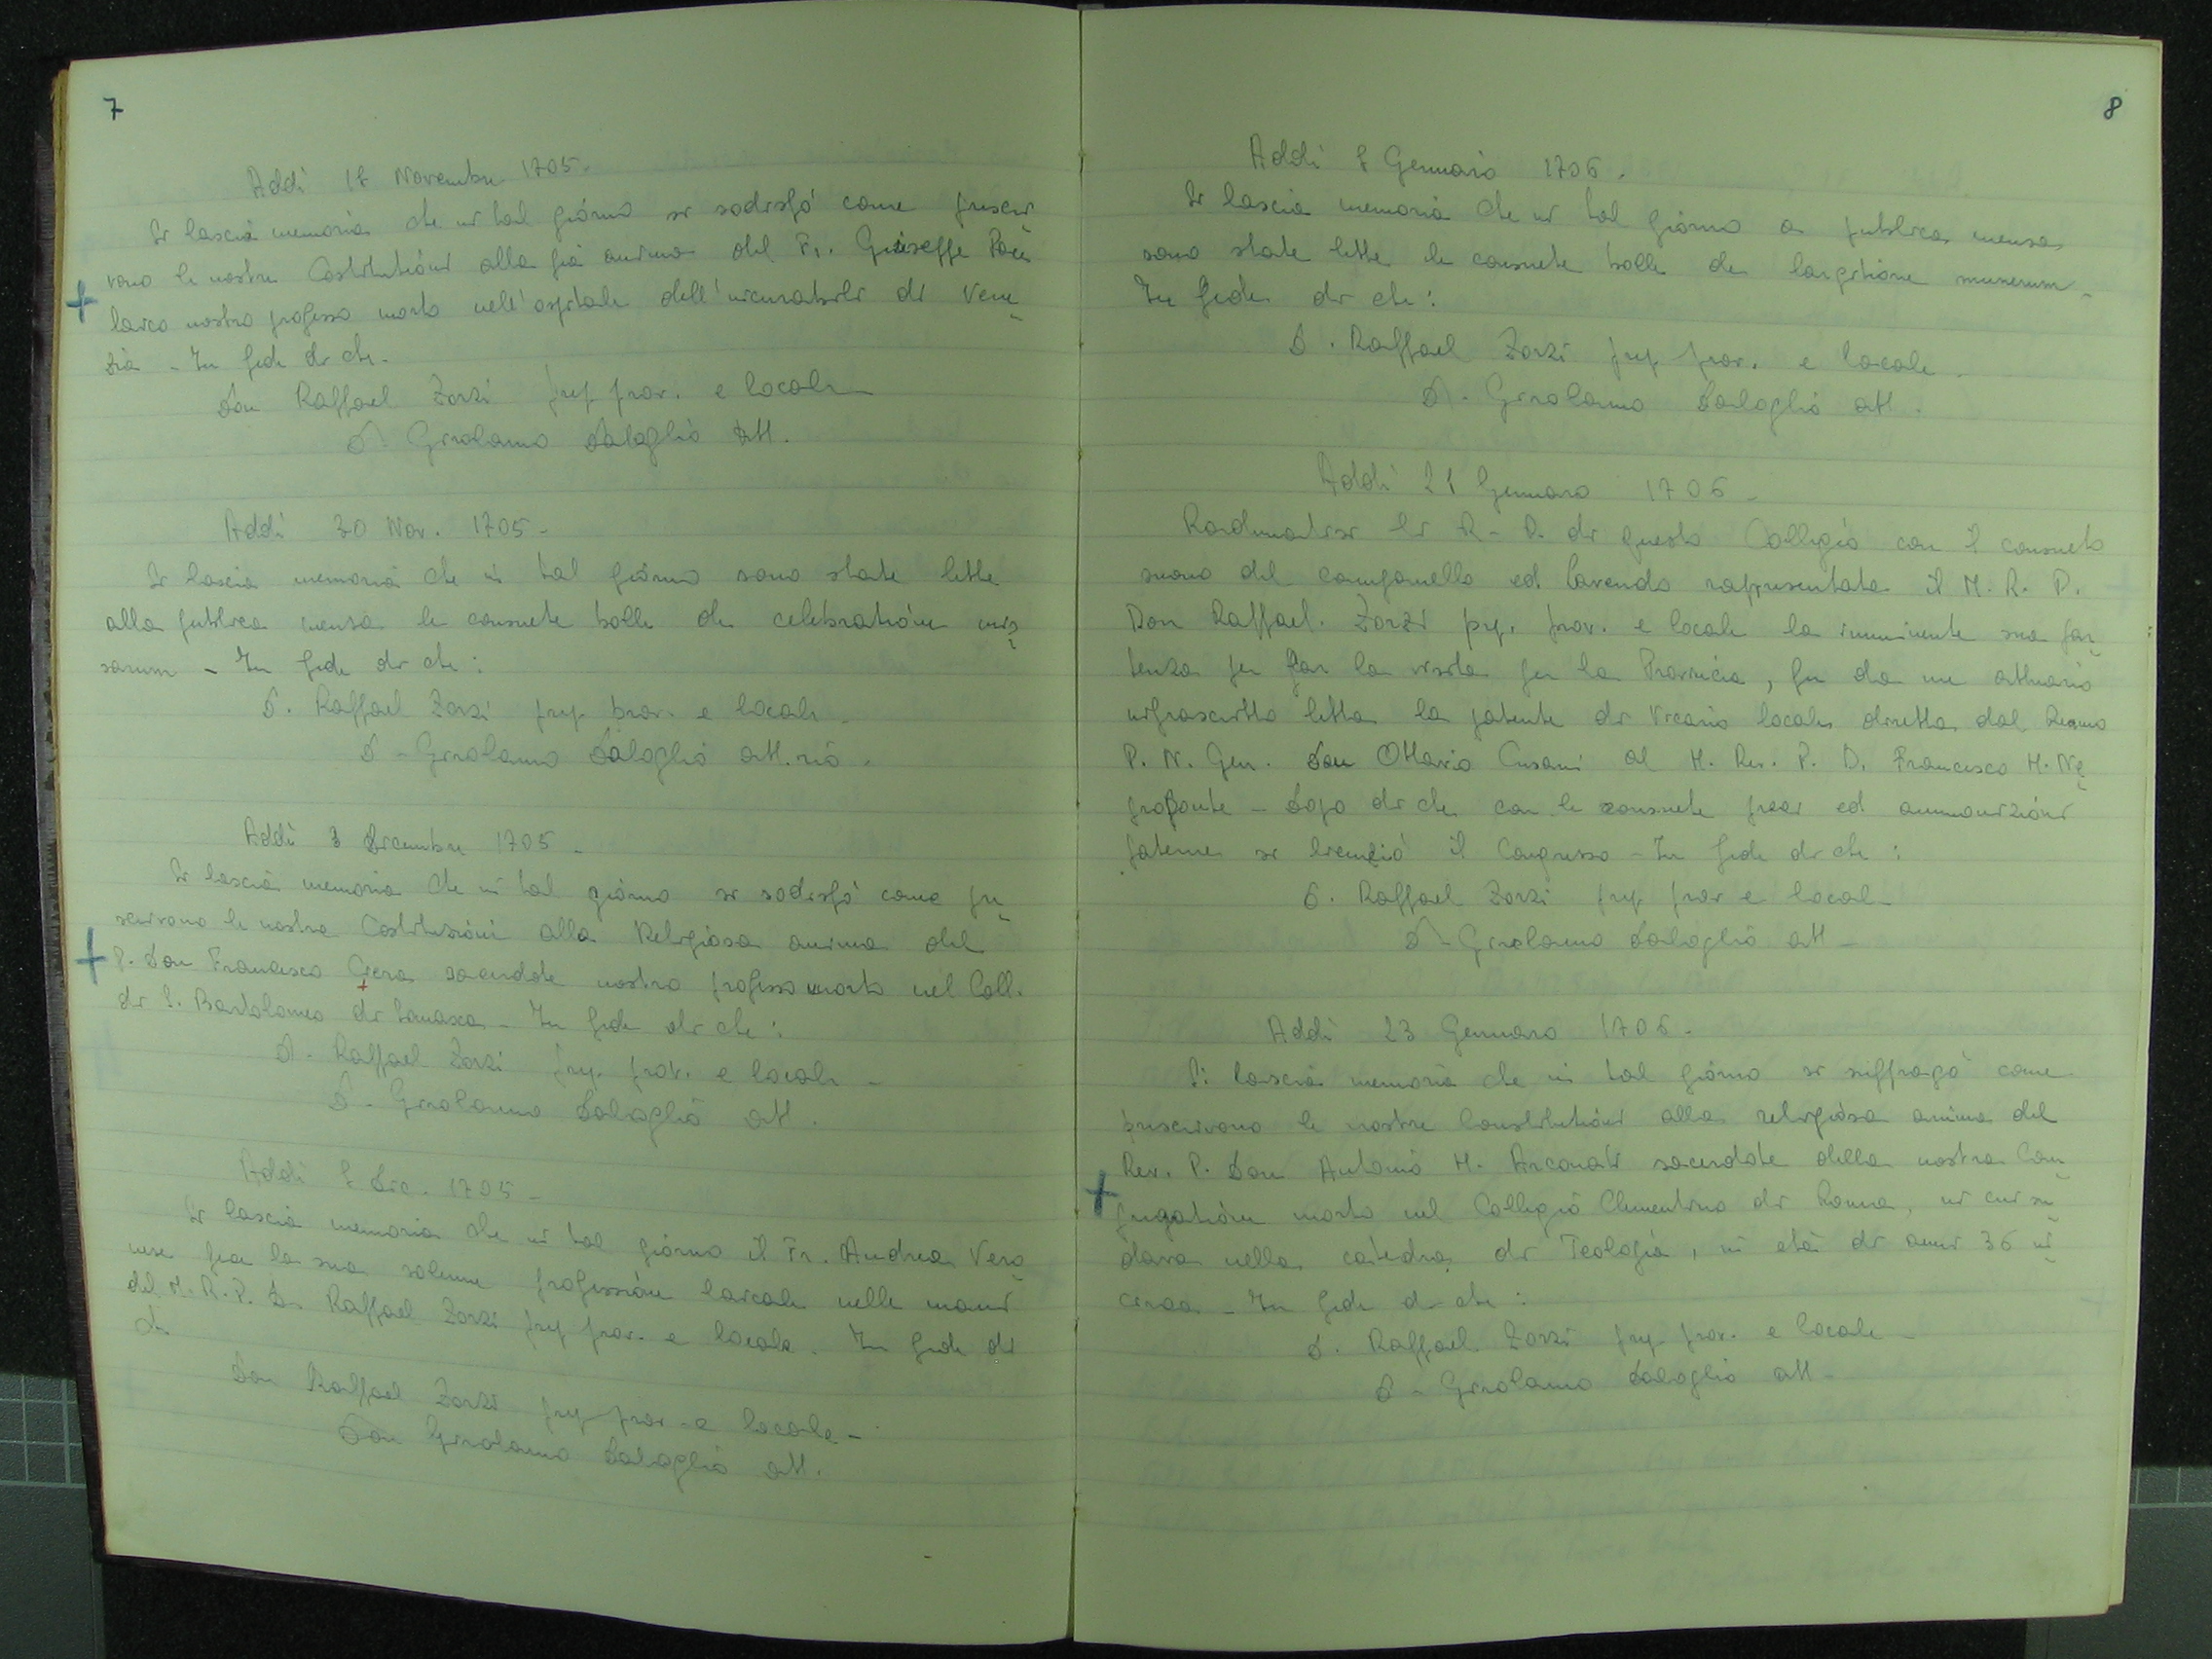 7
Addì 17 Novembre 1705.
Si lascia memoria che in tal giorno si sodisfò come prescri
vono le nostre Costitutioni alla pia anima del Fr. Giuseppe
laico nostro professo morto nell'ospitale dell'incurabili di Vene
zia - In fede di che.
Don Raffael Zorzi prep. prov. e locale
D. Girolamo Baloglio att.
Addì 30 Nov. 1705 -
Si lascia memoria che in tal giorno sono state lette
alla publica mensa le consuete bolle de celebratione mis
sarum - In fede di che:
D. Raffael Zorzi prep. prov. e locale -
D - Girolamo Baloglio att.rio -
Addì 3 Dicembre 1705 -
Si lascia memoria che in tal giorno si sodisfò come pre
scrivono le nostre Costituzioni alla Religiosa anima del
P. Don Francesco sacerdote nostro professo morto nel Coll.
di S. Bartolomeo di Somasca - In fede di che:
D. Raffael Zorzi prep. prov. e locale -
D - Girolamo Baloglio att.
Addì 8 Dic. 1705 -
Si lascia memoria che in tal giorno il Fr. Andrea Vero
nese fece la sua solenne professione laicale nelle mani
del M. R. P. Dn Raffael Zorzi prep. prov. e locale. In fede di
che
Don Raffael Zorzi prep. prov - e locale -
Don Girolamo Baloglio att.
8
Addì 8 Gennaio 1706.
Si lascia memoria che in tal giorno a publica mensa
sono state lette le consuete bolle de largitione munerum -
In fede di che:
D. Raffael Zorzi prep. prov. e locale -
D. Girolamo Baloglio att.
Addì 21 Gennaro 1706 -
Radunatisi li R. P. di questo Collegio con il consueto
suono del campanello ed havendo rappresentata il M. R. P.
Don Raffael Zorzi prep. prov. e locale la imminente sua par
tenza per far la visita per la Provincia, fu da me attuario
infrascritto letta la patente di Vicario locale diretta dal Rev.mo
P. N. Gen. Don Ottavio Cusani al M. Rev. P. D. Francesco M. Ne
groponte - Dopo di che con le consuete preci ed ammonizioni
paterne si licenziò il Congresso - In fede di che:
D. Raffael Zorzi prep. prov e local -
D - Girolamo Baloglio att -
Addì 23 Gennaro 1706 -
Si lascia memoria che in tal giorno si suffragò come
prescrivono le nostre Constitutioni alla religiosa anima del
Rev. P. Don Antonio M. Arconati sacerdote della nostra Con
gregatione morto nel Collegio Clementino di Roma, in cui su
dava nella catedra di Teologia, in età di anni 36 in
circa - In fede di che:
D. Raffael Zorzi prep. prov. e locale -
D - Girolamo Baloglio att -